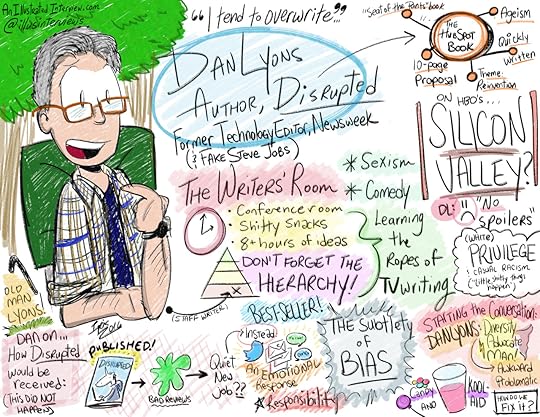 AnIllustratedInterview.com
@illusinterviews
"I tend to overwrite..."
DAN LYONS
AUTHOR, DISRUPTED
Former Technology Editor, Newsweek
(& FAKE STEVE JOBS)
"Seat of the Pants" book
THE
HUBSPOT
BOOK
Ageism
Quickly
Written
Theme:
Reinvention
10-page
Proposal
ON HBO's...
SILICON
VALLEY?
DL:
"No
spoilers"
THE WRITERS' ROOM
• Conference room
• Shitty Snacks
• 8+ hours of ideas
DON'T FORGET THE
HIERARCHY!
(STAFF WRITER)
* Sexism
* Comedy
Learning
the
Ropes of
TV writing
(WHITE)
PRIVILEGE
• CASUAL RACISM
("Little shitty things
happen")
OLD
MAN
LYONS
DAN on...
How Disrupted
would be
received:
(THIS DID NOT
HAPPEN)
PUBLISHED!
DISRUPTED
BAD REVIEWS
Quiet
New
Job??
BEST-SELLER!
Instead:
AN EMOTIONAL
Response
* Responsibility
THE SUBTLETY
of
BIAS
STARTING the Conversation:
DAN LYONS:
Diversity
Advocate
MAN!
Awkward
Problematic
Candy
AND
KOOL-
AID
HOW DO WE
FIX it?